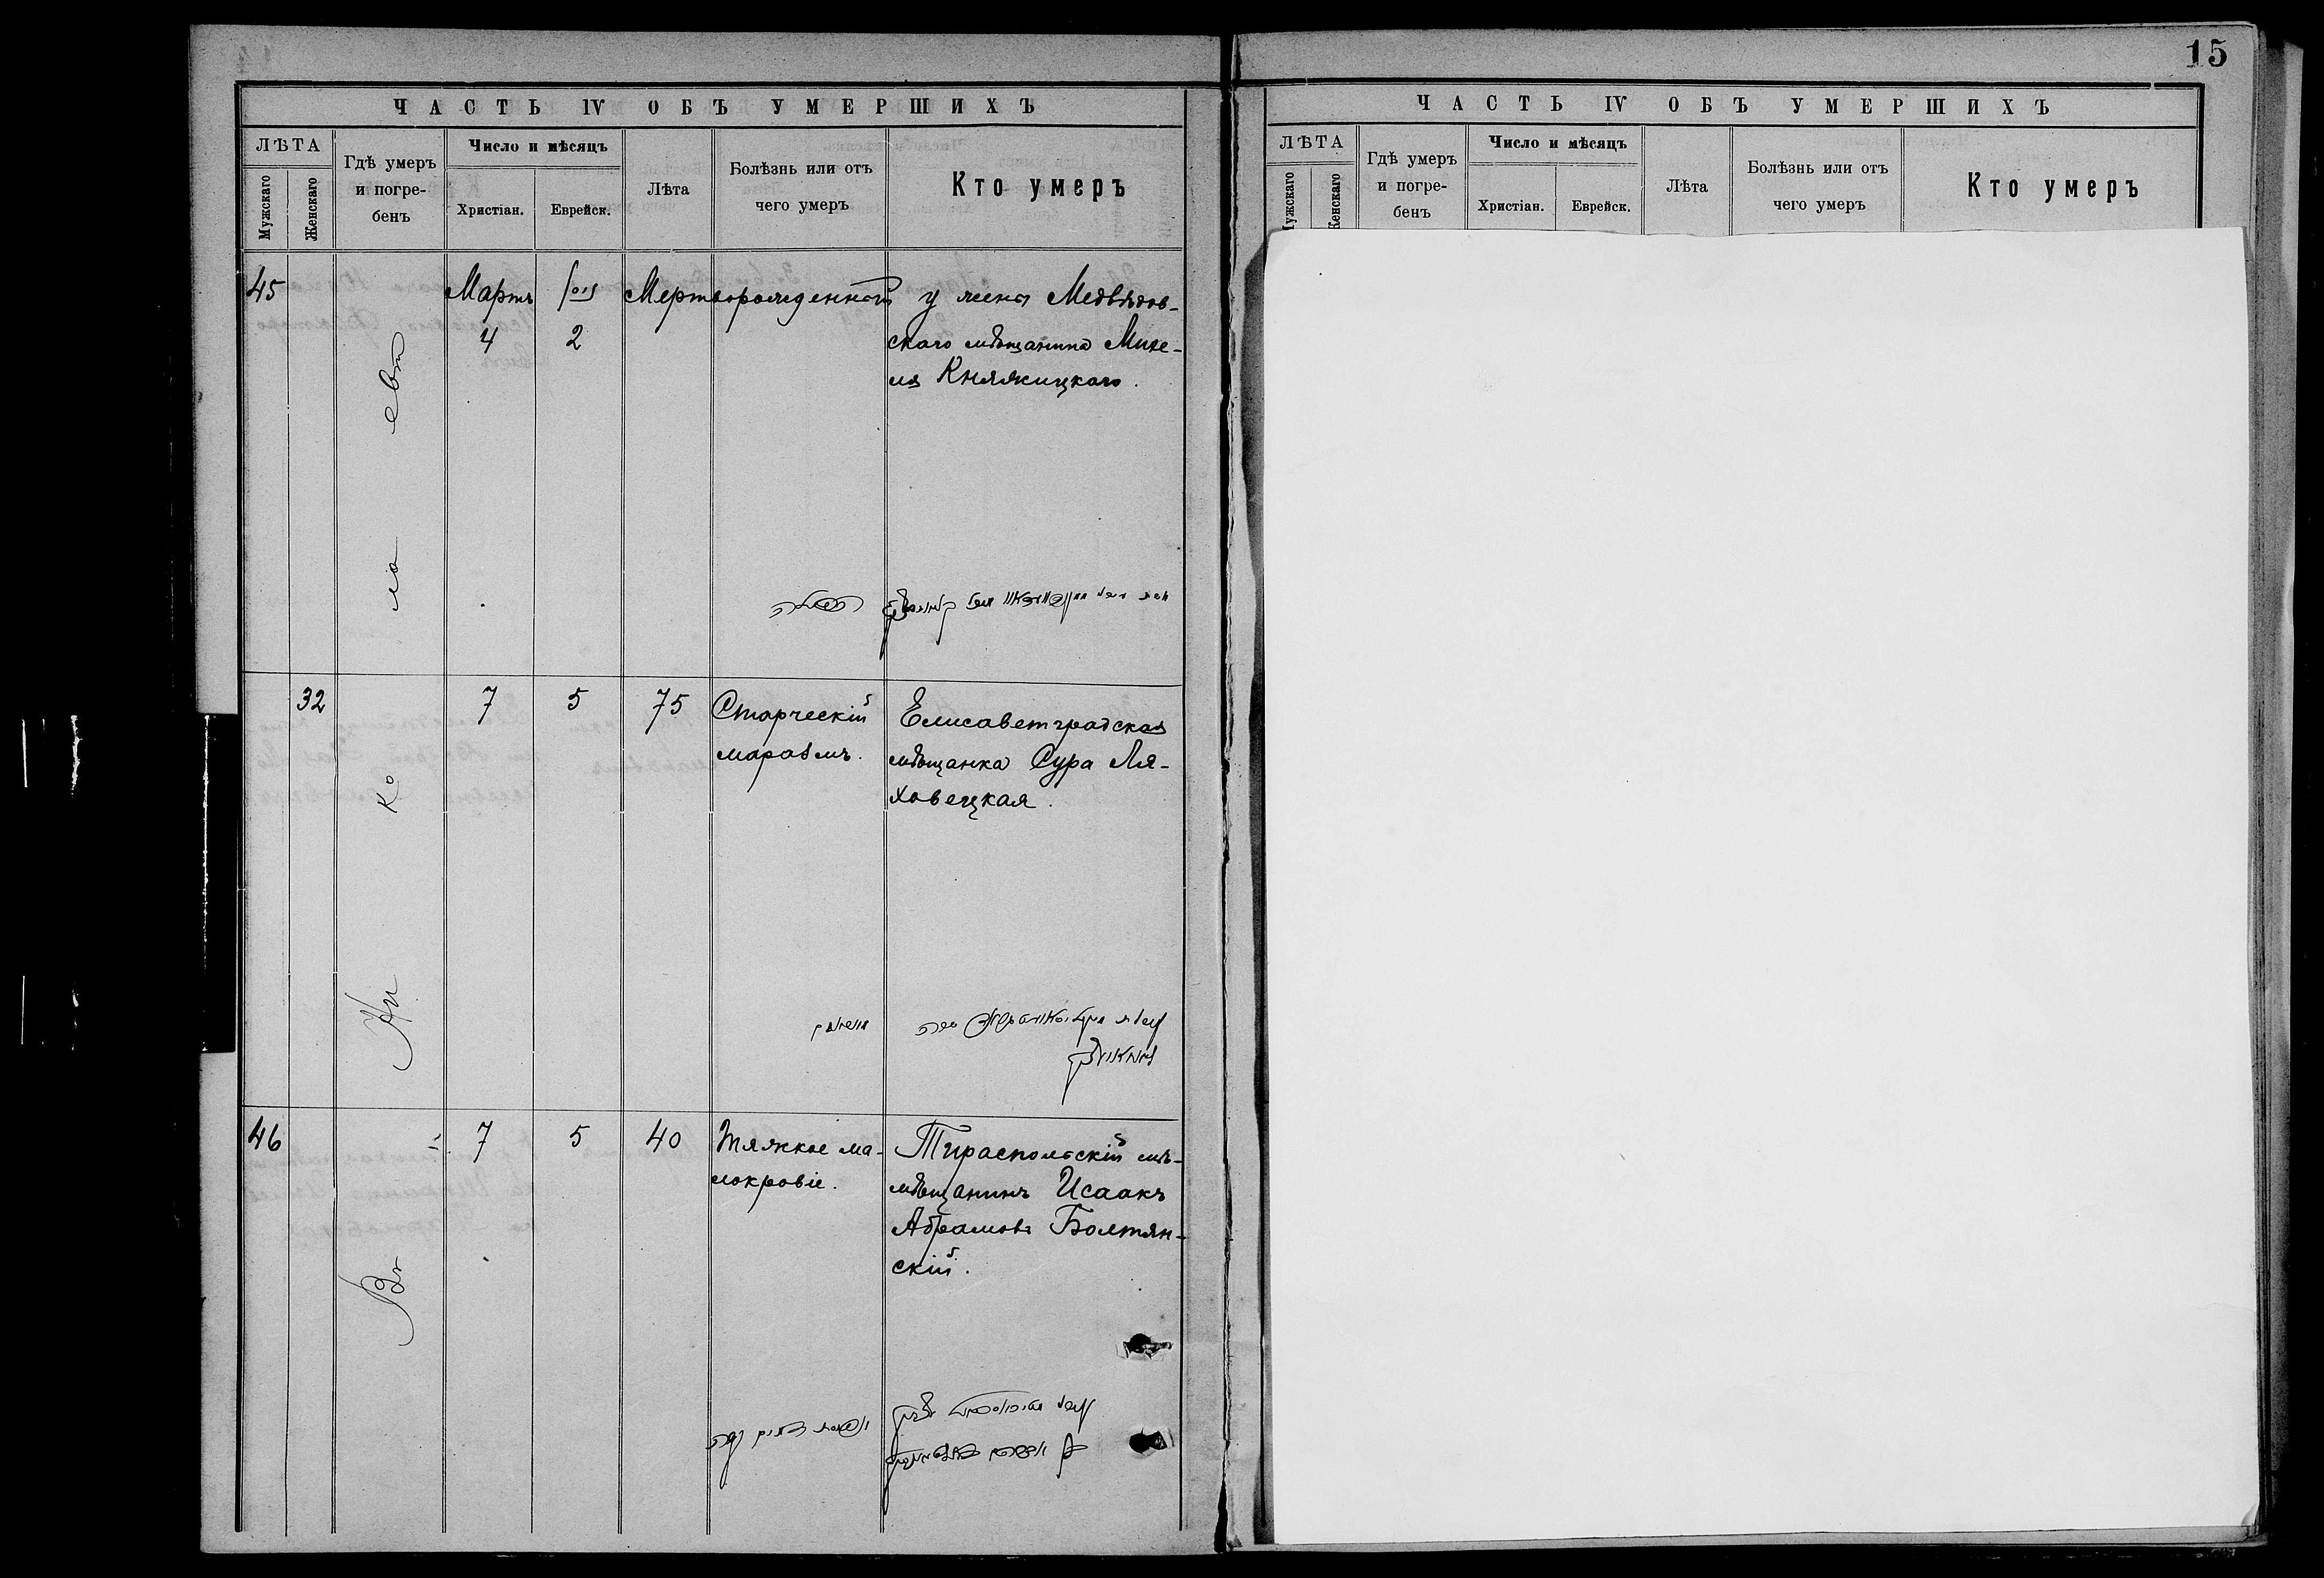 15
ЧАСТЬ IV ОБЪ УМЕРШИХЪ
ЛѢТА
Мужскаго
Женскаго
Гдѣ умеръ
и погре-
бенъ
Число и мѣсяцъ
Христіан.
Еврейск.
Лѣта
Болѣзнь или отъ
чего умеръ
Кто умеръ
Въ Николаевѣ
45
Мартъ
4
ניסן
2
Мертворожденный
у жены Медвѣдов-
скаго мѣщанина Михе-
ля Княжицкаго.
32
7
5
75
Старческій
маразмъ.
Елисаветградская
мѣщанка Сура Ля-
ховецкая.
46
7
5
40
Тяжкое ма-
локровіе.
Тираспольскій мѣ-
мѣщанинъ Исаакъ
Абрамовъ Болтян-
скій.
ЧАСТЬ IV ОБЪ УМЕРШИХЪ
ЛѢТА
Мужскаго
Женскаго
Гдѣ умеръ
и погре-
бенъ
Число и мѣсяцъ
Христіан.
Еврейск.
Лѣта
Болѣзнь или отъ
чего умеръ
Кто умеръ